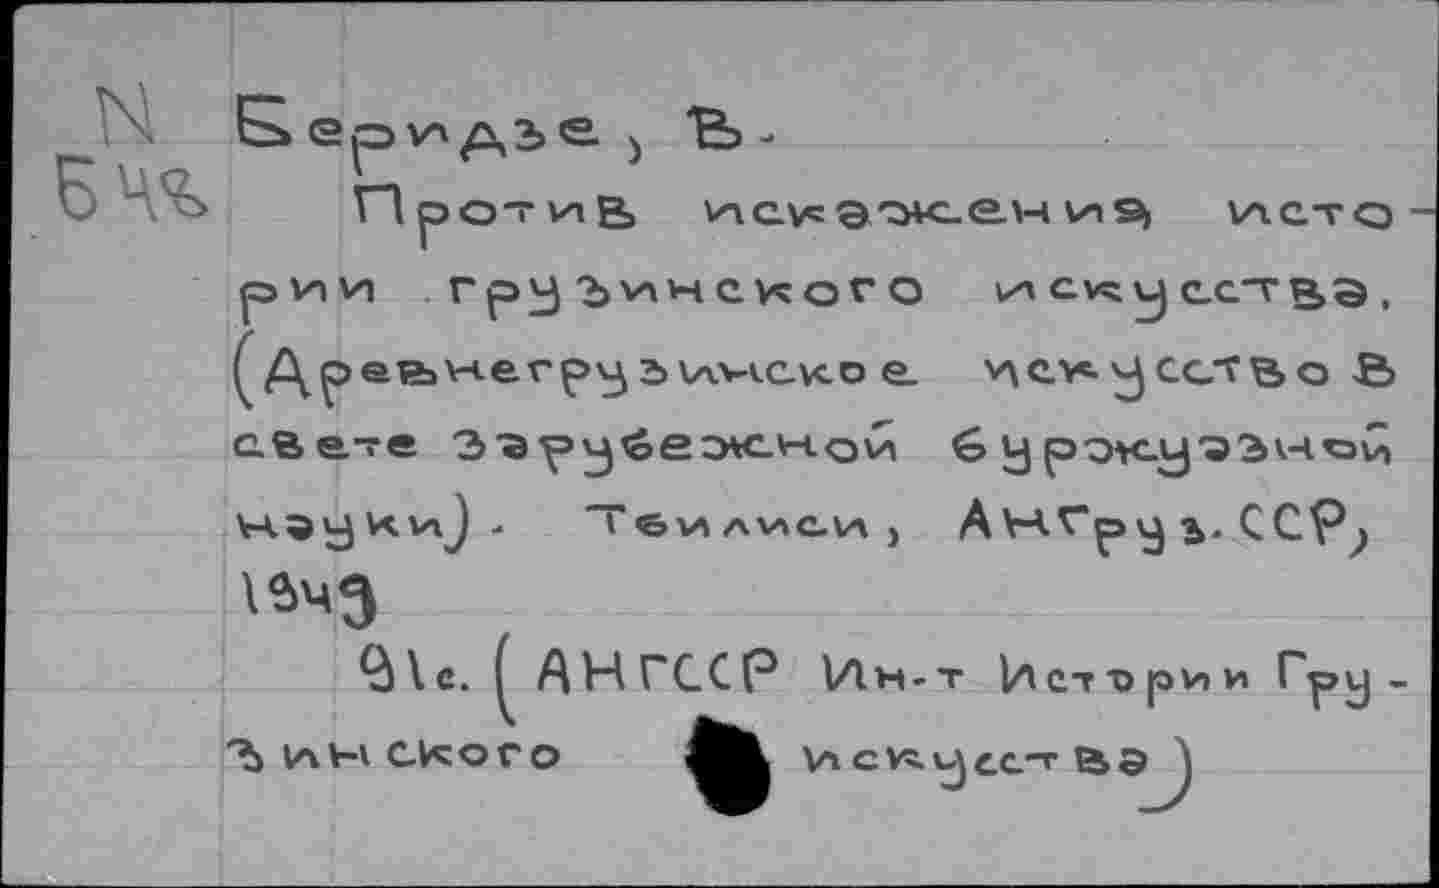 N Беридзе, В.
Б48 Против искажения исто-
рии грузинского искусства.
(Древнегрузинское искусство в
свете зарубежной буржуазной
науки). Тбилиси, АНГруз. ССР,
1949
91с. (АНГССР Ин-т Истории Гру-
зинского искусства)